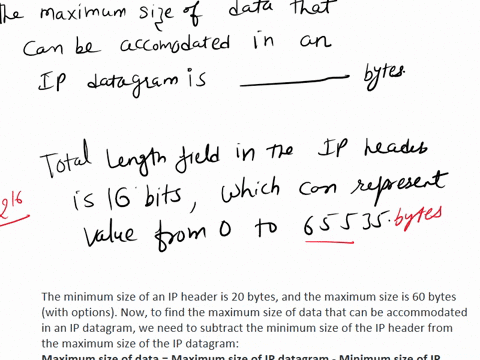 The maximum size of data that
Can be accomodated in an
IP datagram is ________ bytes.
Total Length field in the IP header
is 16 bits, which can represent
2^16
value from 0 to 65535. bytes
The minimum size of an IP header is 20 bytes, and the maximum size is 60 bytes
(with options). Now, to find the maximum size of data that can be accommodated
in an IP datagram, we need to subtract the minimum size of the IP header from
the maximum size of the IP datagram:
Maximum size of data = Maximum size of IP datagram - Minimum size of IP